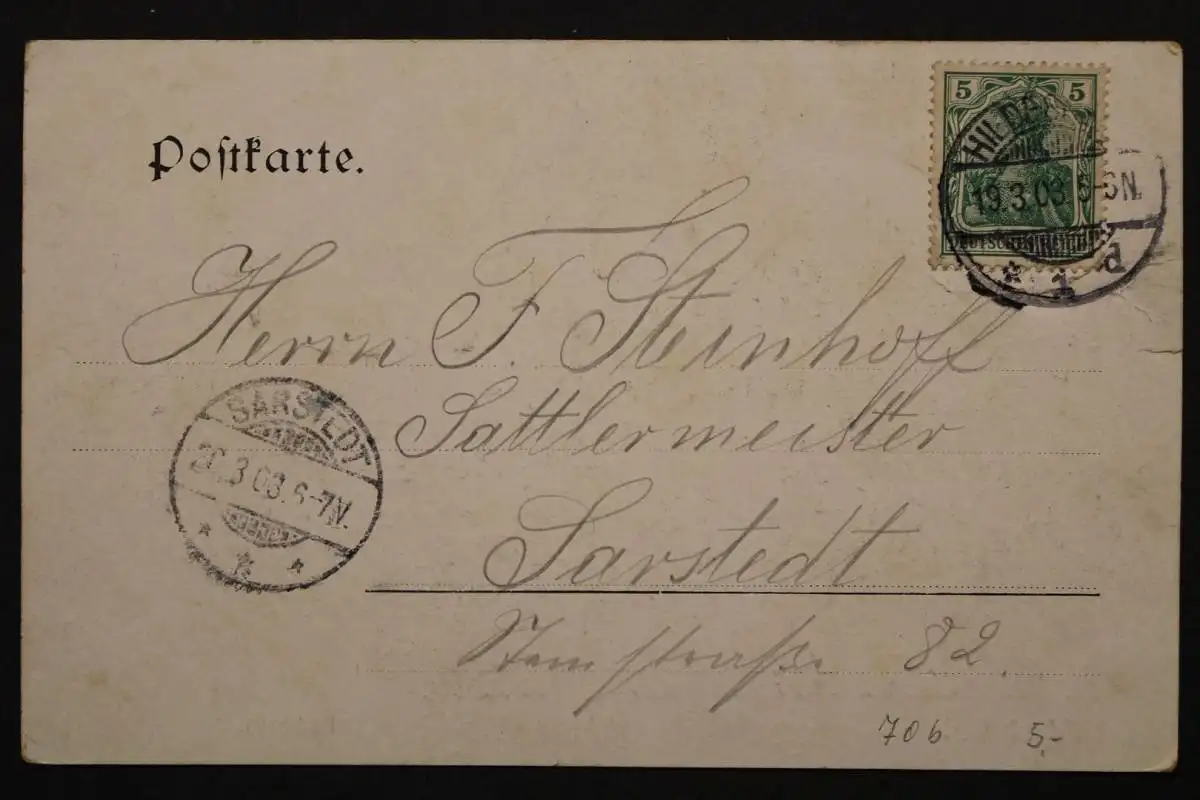 Postkarte.
5 5
19.3.03. 5-6N.
* 1 d
Herrn F. Steinhoff
Sattlermeister
SARSTEDT
20.3.03. 6-7N.
* * *
Sarstedt
Steinstraße 82.
706 5,-